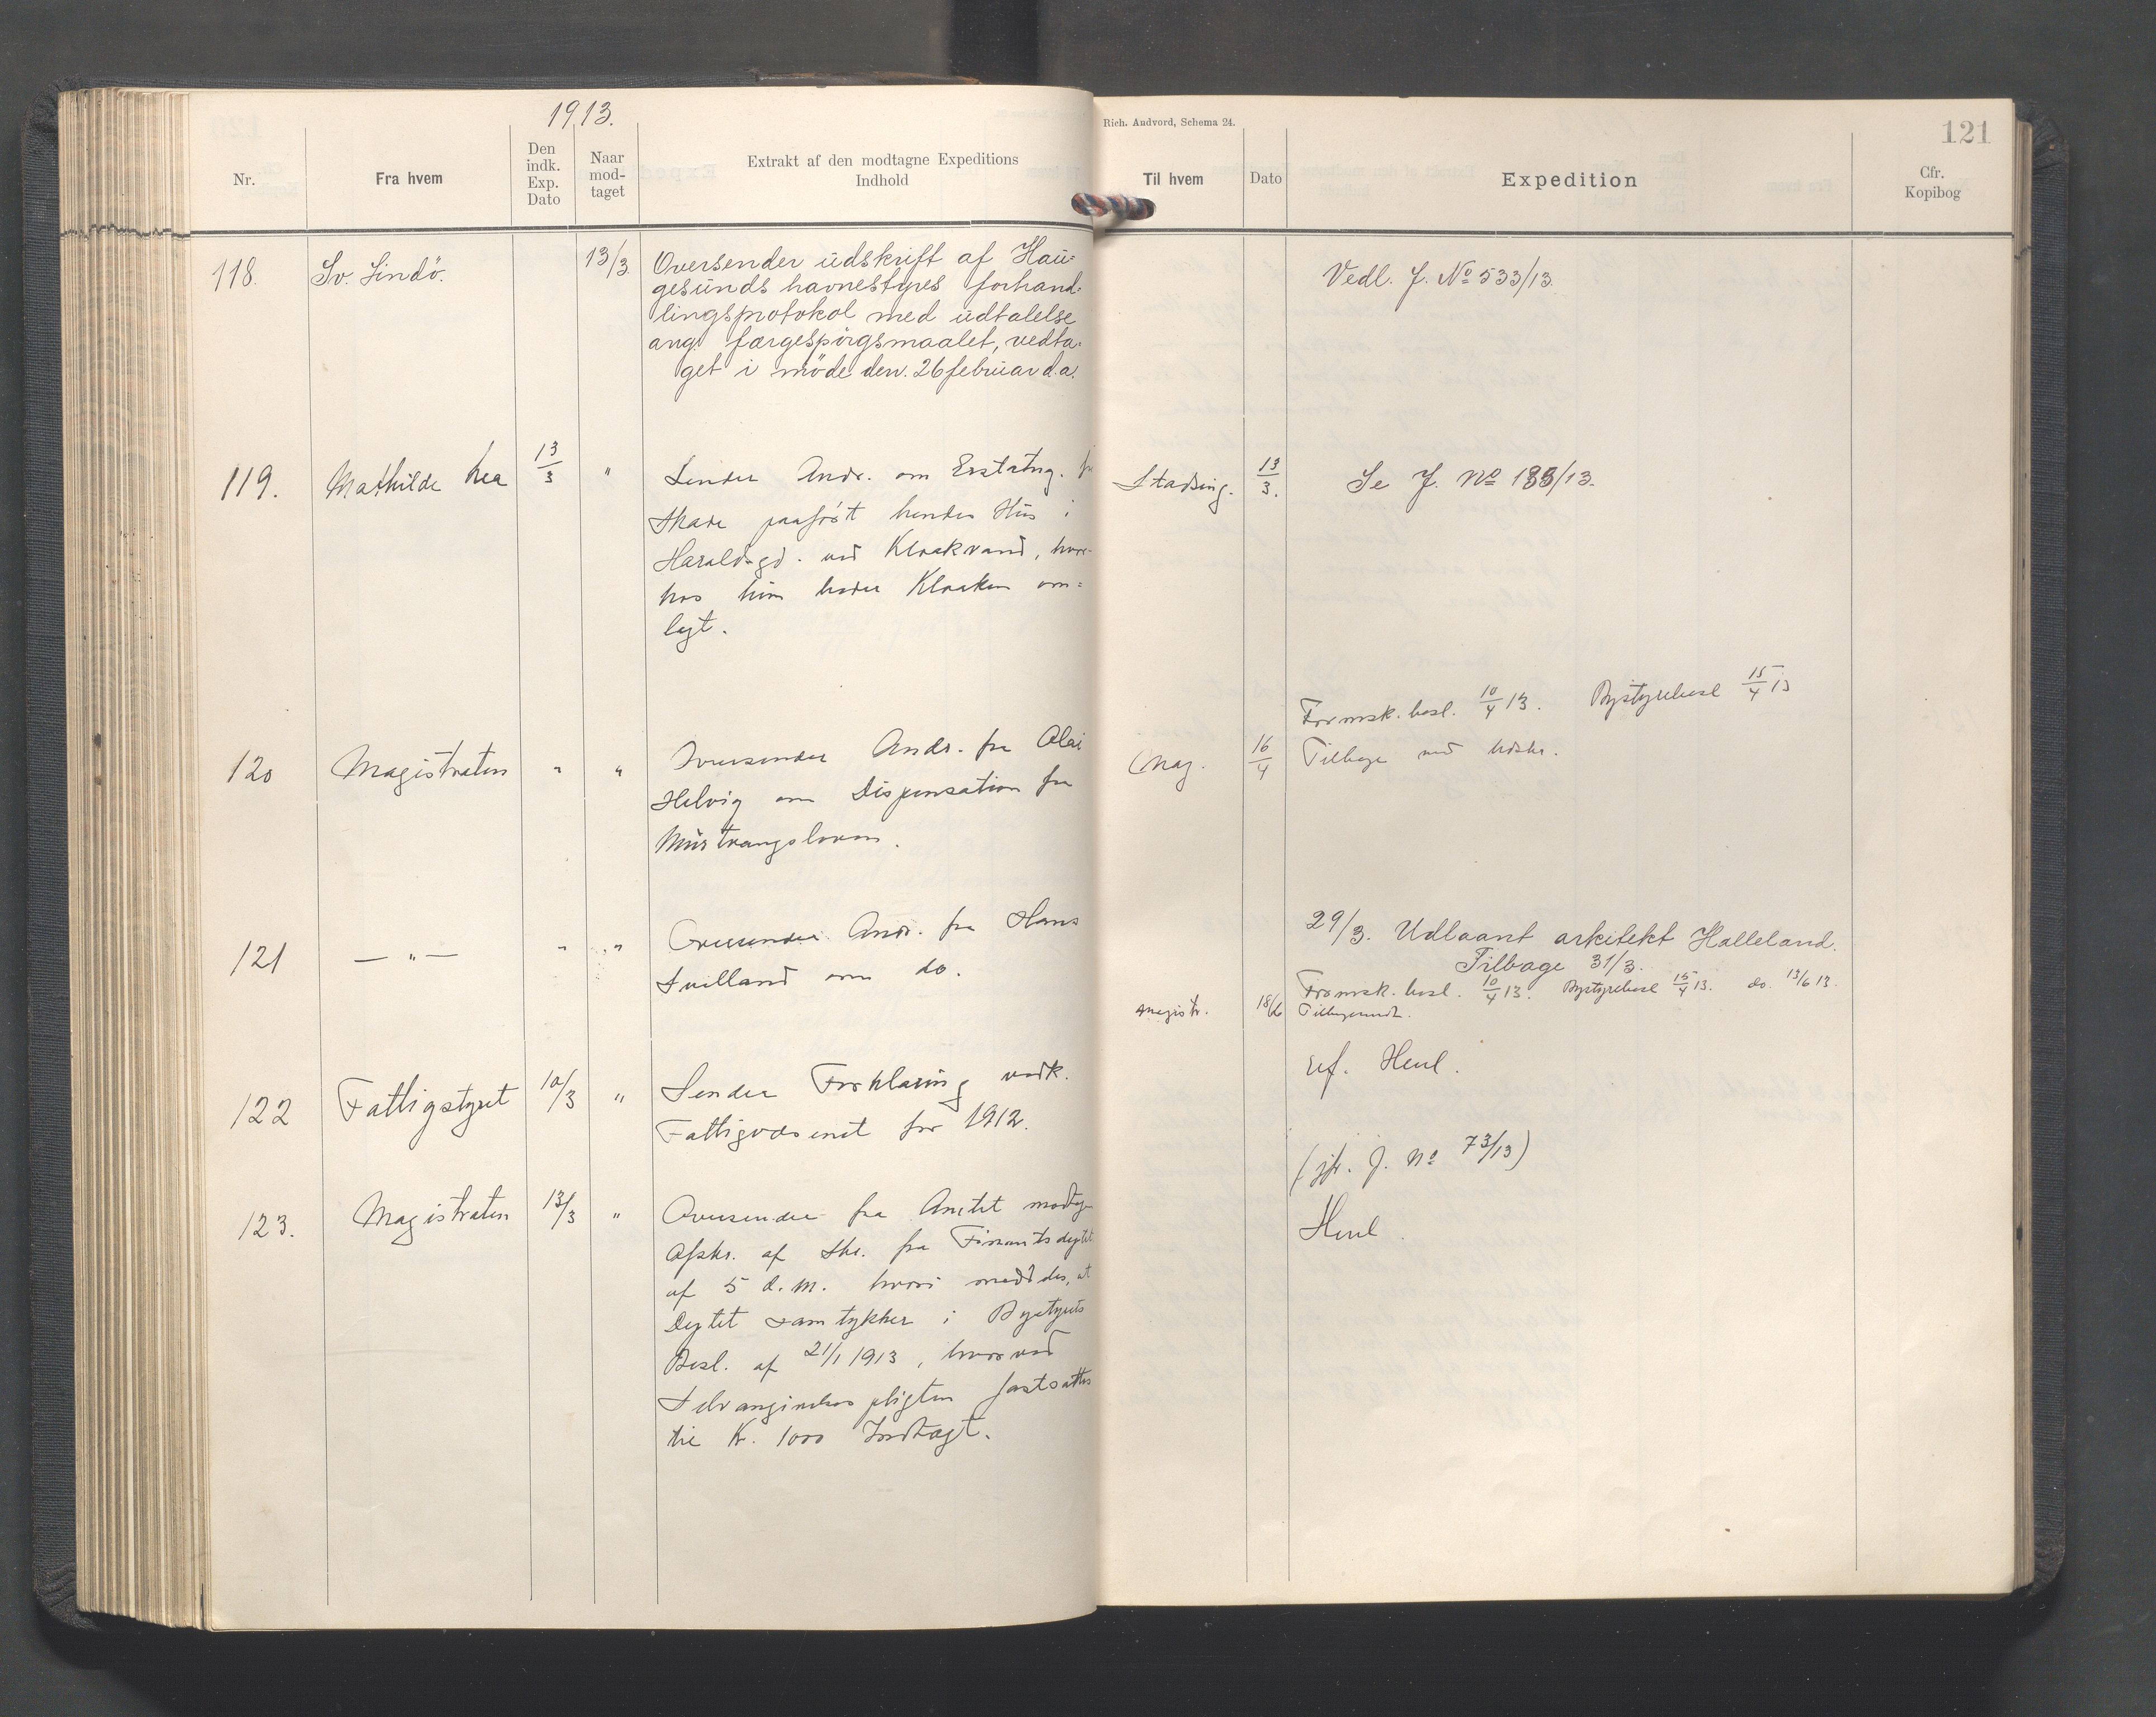 1913.
Nr.
Fra hvem
Den
indk.
Exp.
Dato
Naar
mod-
taget
Extrakt af den modtagne Expeditions
Indhold
118.
Sv. Lindö.
13/3
Oversender udskrift af Hau-
gesunds havnestyres forhand-
lingsprotokol med udtalelse
ang. færgespörgsmaalet, vedta-
get i möde den 26 februar d.a.
119.
Mathilde
13/3
"
Sender Andr. om Erstatng. for
Skade paaført hendes Hus i
Haraldsgd. ved Kloakvand,
Kloaken om-
lagt.
120
Magistraten
"
"
Oversender Andr. fra
Helvig om Dispensation fra
Murtvangsloven.
121
— " —
"
"
Oversender Andr. fra Hans
om do.
122
Fattigstyret
10/3
"
Sender Forklaring vedk.
Fattigvæsenet for 1912.
123.
Magistraten
13/3
"
Oversender fra Amtet modtagen
Afskr. af Skr. fra Finantsdeptet
af 5 d.m. hvori meddeles, at
Deptet samtykker i Bystyrets
Besl. af 21/1 1913, hvorved
pligten fastsættes
til Kr. 1000 Indtægt.
Rich. Andvord, Schema 24.
121
Til hvem
Dato
Expedition
Cfr.
Kopibog
Vedl. J. No 533/13
Stadsing.
13/3.
Se J. No /13.
Formsk. besl. 10/4 13. Bystyrebesl 15/4 13
Mag.
16/4
Tilbage med Udskr.
29/3. Udlaant arkitekt Halleland.
Tilbage 31/3.
Formsk. besl. 10/4 13. Bystyrebesl 15/4 13. do. 13/6 13.
Magistr.
18/6
Tilbagesendt.
ref. Henl.
(jfr. J. No 73/13)
Henl.